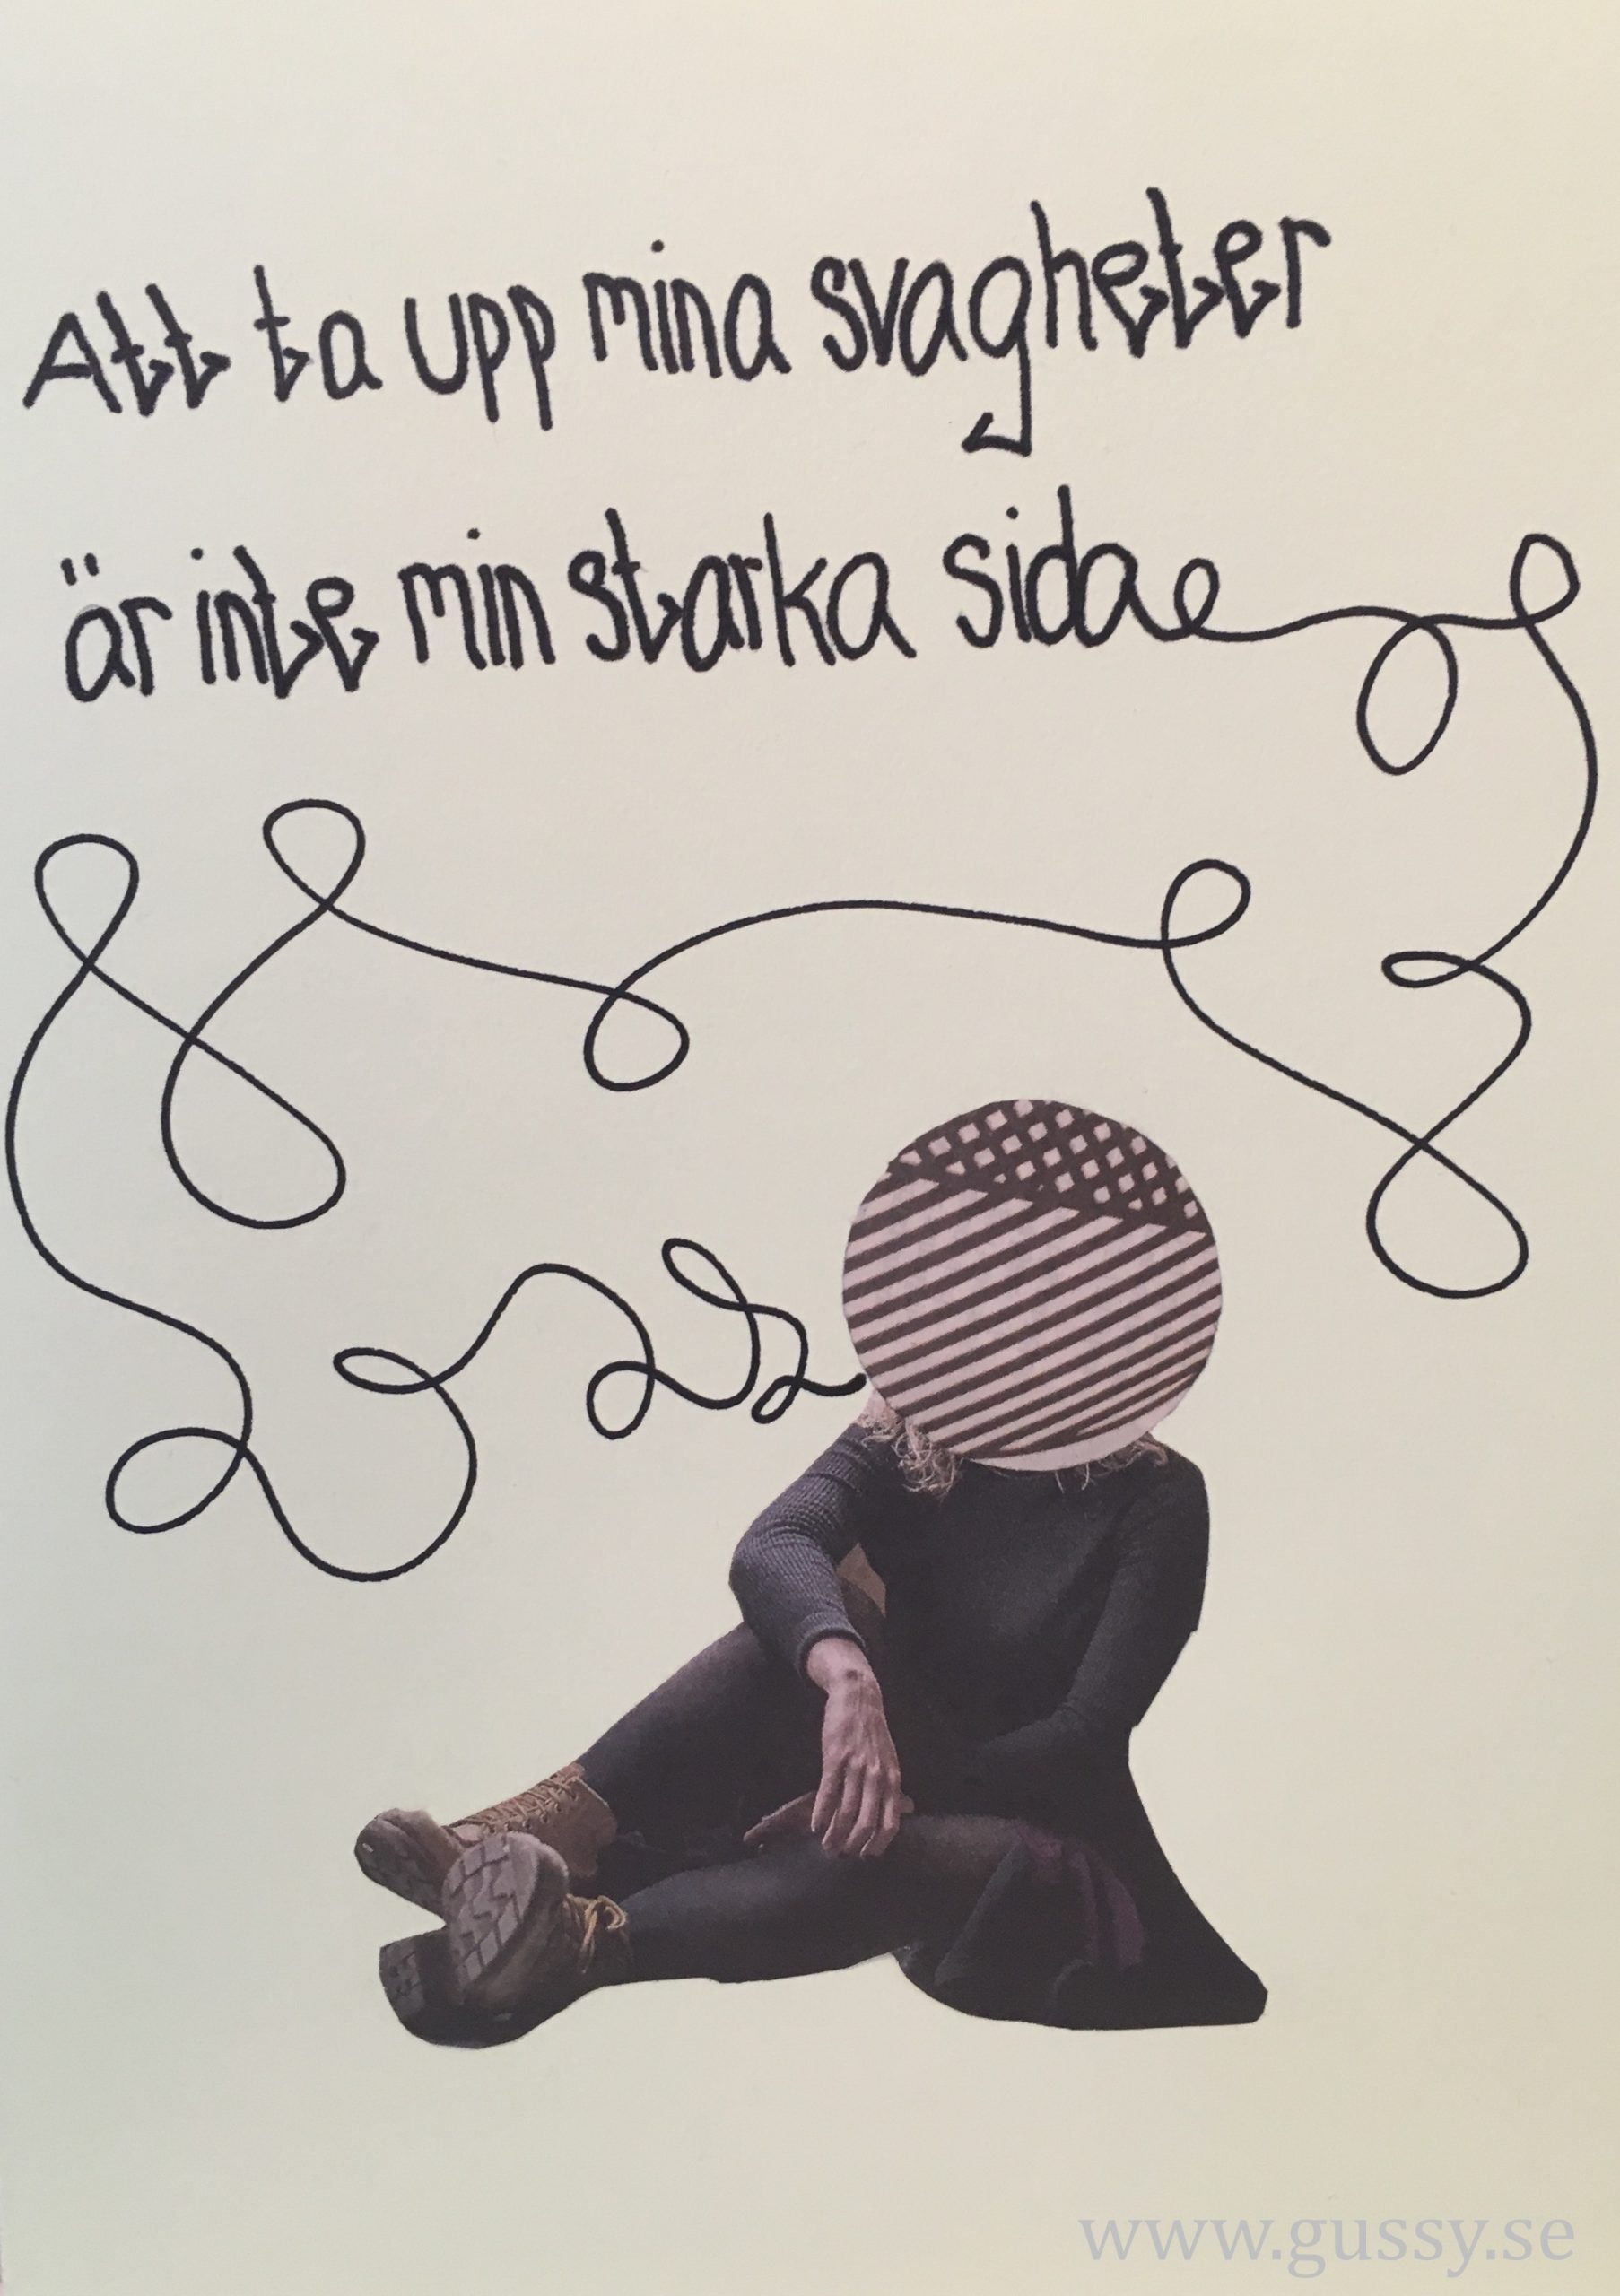 Att ta upp mina svagheter
är inte min starka sida
www.gussy.se